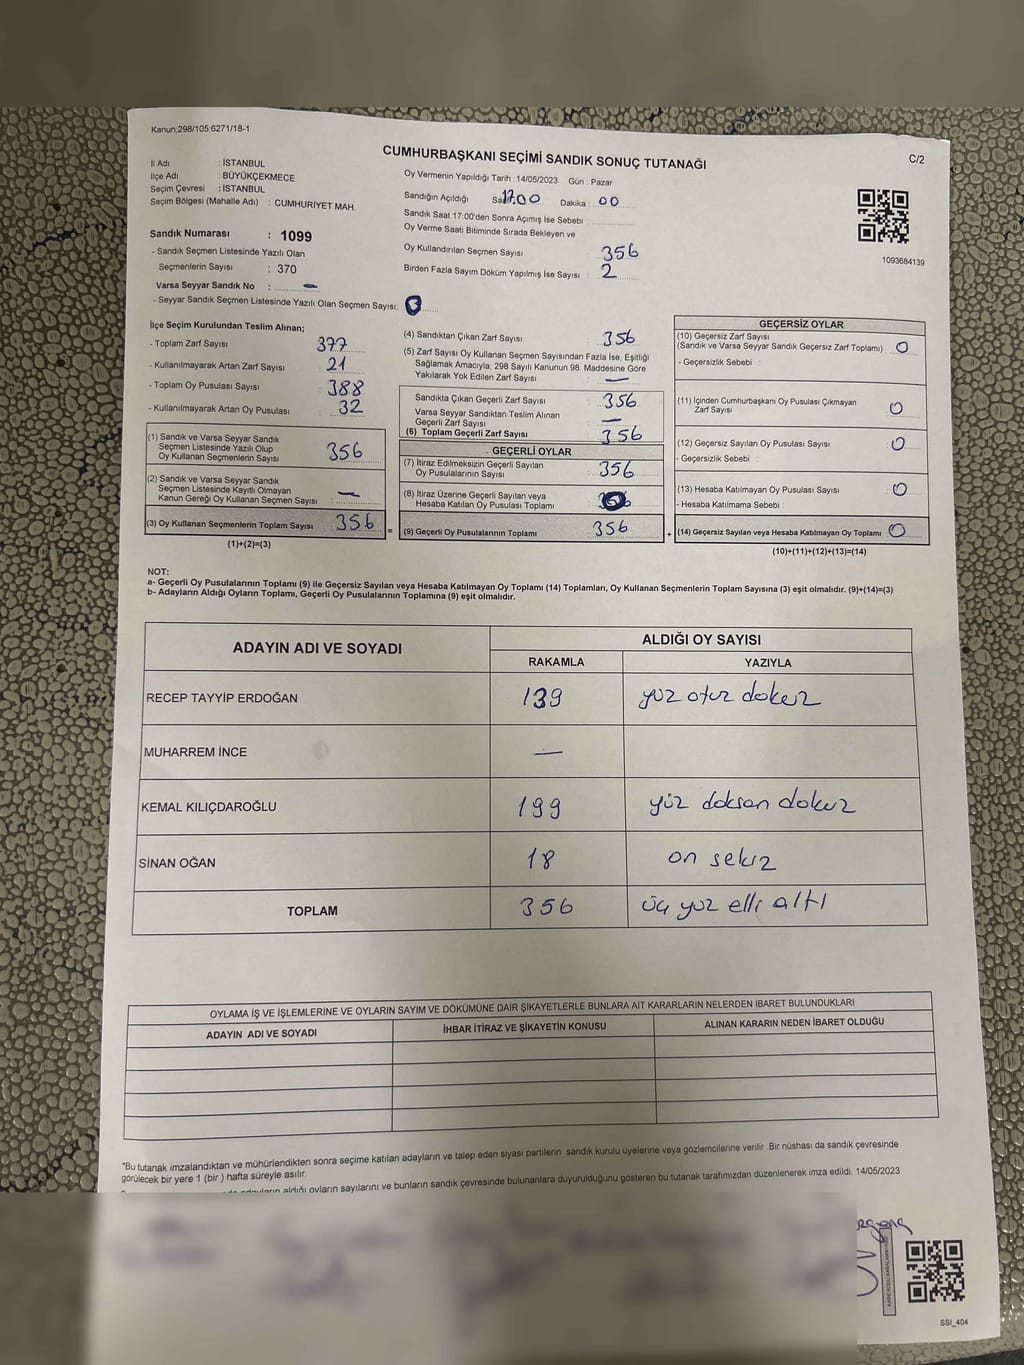 Kanun;298/105;6271/18-1
CUMHURBAŞKANI SEÇİMİ SANDIK SONUÇ TUTANAĞI
C/2
İl Adı : İSTANBUL
İlçe Adı : BÜYÜKÇEKMECE
Seçim Çevresi : İSTANBUL
Seçim Bölgesi (Mahalle Adı) : CUMHURİYET MAH.
Oy Vermenin Yapıldığı Tarih : 14/05/2023 Gün : Pazar
Sandığın Açıldığı Saat 17:00 Dakika : 00
Sandık Saat 17:00'den Sonra Açmış İse Sebebi :
Oy Verme Saati Bitiminde Sırada Bekleyen ve
Oy Kullandırılan Seçmen Sayısı : 356
Birden Fazla Sayım Döküm Yapılmış İse Sayısı : 2
1093684139
Sandık Numarası : 1099
- Sandık Seçmen Listesinde Yazılı Olan
Seçmenlerin Sayısı : 370
Varsa Seyyar Sandık No : —
- Seyyar Sandık Seçmen Listesinde Yazılı Olan Seçmen Sayısı:
İlçe Seçim Kurulundan Teslim Alınan;
- Toplam Zarf Sayısı : 377
- Kullanılmayarak Artan Zarf Sayısı : 21
- Toplam Oy Pusulası Sayısı : 388
- Kullanılmayarak Artan Oy Pusulası : 32
(1) Sandık ve Varsa Seyyar Sandık
Seçmen Listesinde Yazılı Olup
Oy Kullanan Seçmenlerin Sayısı : 356
(2) Sandık ve Varsa Seyyar Sandık
Seçmen Listesinde Kayıtlı Olmayan
Kanun Gereği Oy Kullanan Seçmen Sayısı : —
(3) Oy Kullanan Seçmenlerin Toplam Sayısı : 356
(1)+(2)=(3)
=
(4) Sandıktan Çıkan Zarf Sayısı : 356
(5) Zarf Sayısı Oy Kullanan Seçmen Sayısından Fazla İse, Eşitliği
Sağlamak Amacıyla; 298 Sayılı Kanunun 98. Maddesine Göre
Yakılarak Yok Edilen Zarf Sayısı : —
Sandıkta Çıkan Geçerli Zarf Sayısı : 356
Varsa Seyyar Sandıktan Teslim Alınan
Geçerli Zarf Sayısı : —
(6) Toplam Geçerli Zarf Sayısı : 356
GEÇERLİ OYLAR
(7) İtiraz Edilmeksizin Geçerli Sayılan
Oy Pusulalarının Sayısı : 356
(8) İtiraz Üzerine Geçerli Sayılan veya
Hesaba Katılan Oy Pusulası Toplamı :
(9) Geçerli Oy Pusulalarının Toplamı : 356
+
GEÇERSİZ OYLAR
(10) Geçersiz Zarf Sayısı
(Sandık ve Varsa Seyyar Sandık Geçersiz Zarf Toplamı) : 0
- Geçersizlik Sebebi :
(11) İçinden Cumhurbaşkanı Oy Pusulası Çıkmayan
Zarf Sayısı : 0
(12) Geçersiz Sayılan Oy Pusulası Sayısı : 0
- Geçersizlik Sebebi :
(13) Hesaba Katılmayan Oy Pusulası Sayısı : 0
- Hesaba Katılmama Sebebi :
(14) Geçersiz Sayılan veya Hesaba Katılmayan Oy Toplamı : 0
(10)+(11)+(12)+(13)=(14)
NOT:
a- Geçerli Oy Pusulalarının Toplamı (9) ile Geçersiz Sayılan veya Hesaba Katılmayan Oy Toplamı (14) Toplamları, Oy Kullanan Seçmenlerin Toplam Sayısına (3) eşit olmalıdır. (9)+(14)=(3)
b- Adayların Aldığı Oyların Toplamı, Geçerli Oy Pusulalarının Toplamına (9) eşit olmalıdır.
ADAYIN ADI VE SOYADI
ALDIĞI OY SAYISI
RAKAMLA YAZIYLA
RECEP TAYYİP ERDOĞAN 139 yüz otuz dokuz
MUHARREM İNCE —
KEMAL KILIÇDAROĞLU 199 yüz doksan dokuz
SİNAN OĞAN 18 on sekiz
TOPLAM 356 üç yüz elli altı
OYLAMA İŞ VE İŞLEMLERİNE VE OYLARIN SAYIM VE DÖKÜMÜNE DAİR ŞİKAYETLERLE BUNLARA AİT KARARLARIN NELERDEN İBARET BULUNDUKLARI
ADAYIN ADI VE SOYADI İHBAR İTİRAZ VE ŞİKAYETİN KONUSU ALINAN KARARIN NEDEN İBARET OLDUĞU
*Bu tutanak imzalandıktan ve mühürlendikten sonra seçime katılan adayların ve talep eden siyasi partilerin sandık kurulu üyelerine veya gözlemcilerine verilir. Bir nüshası da sandık çevresinde
görülecek bir yere 1 (bir ) hafta süreyle asılır.
adayların aldığı oyların sayılarını ve bunların sandık çevresinde bulunanlara duyurulduğunu gösteren bu tutanak tarafımızdan düzenlenerek imza edildi. 14/05/2023
SSI_404